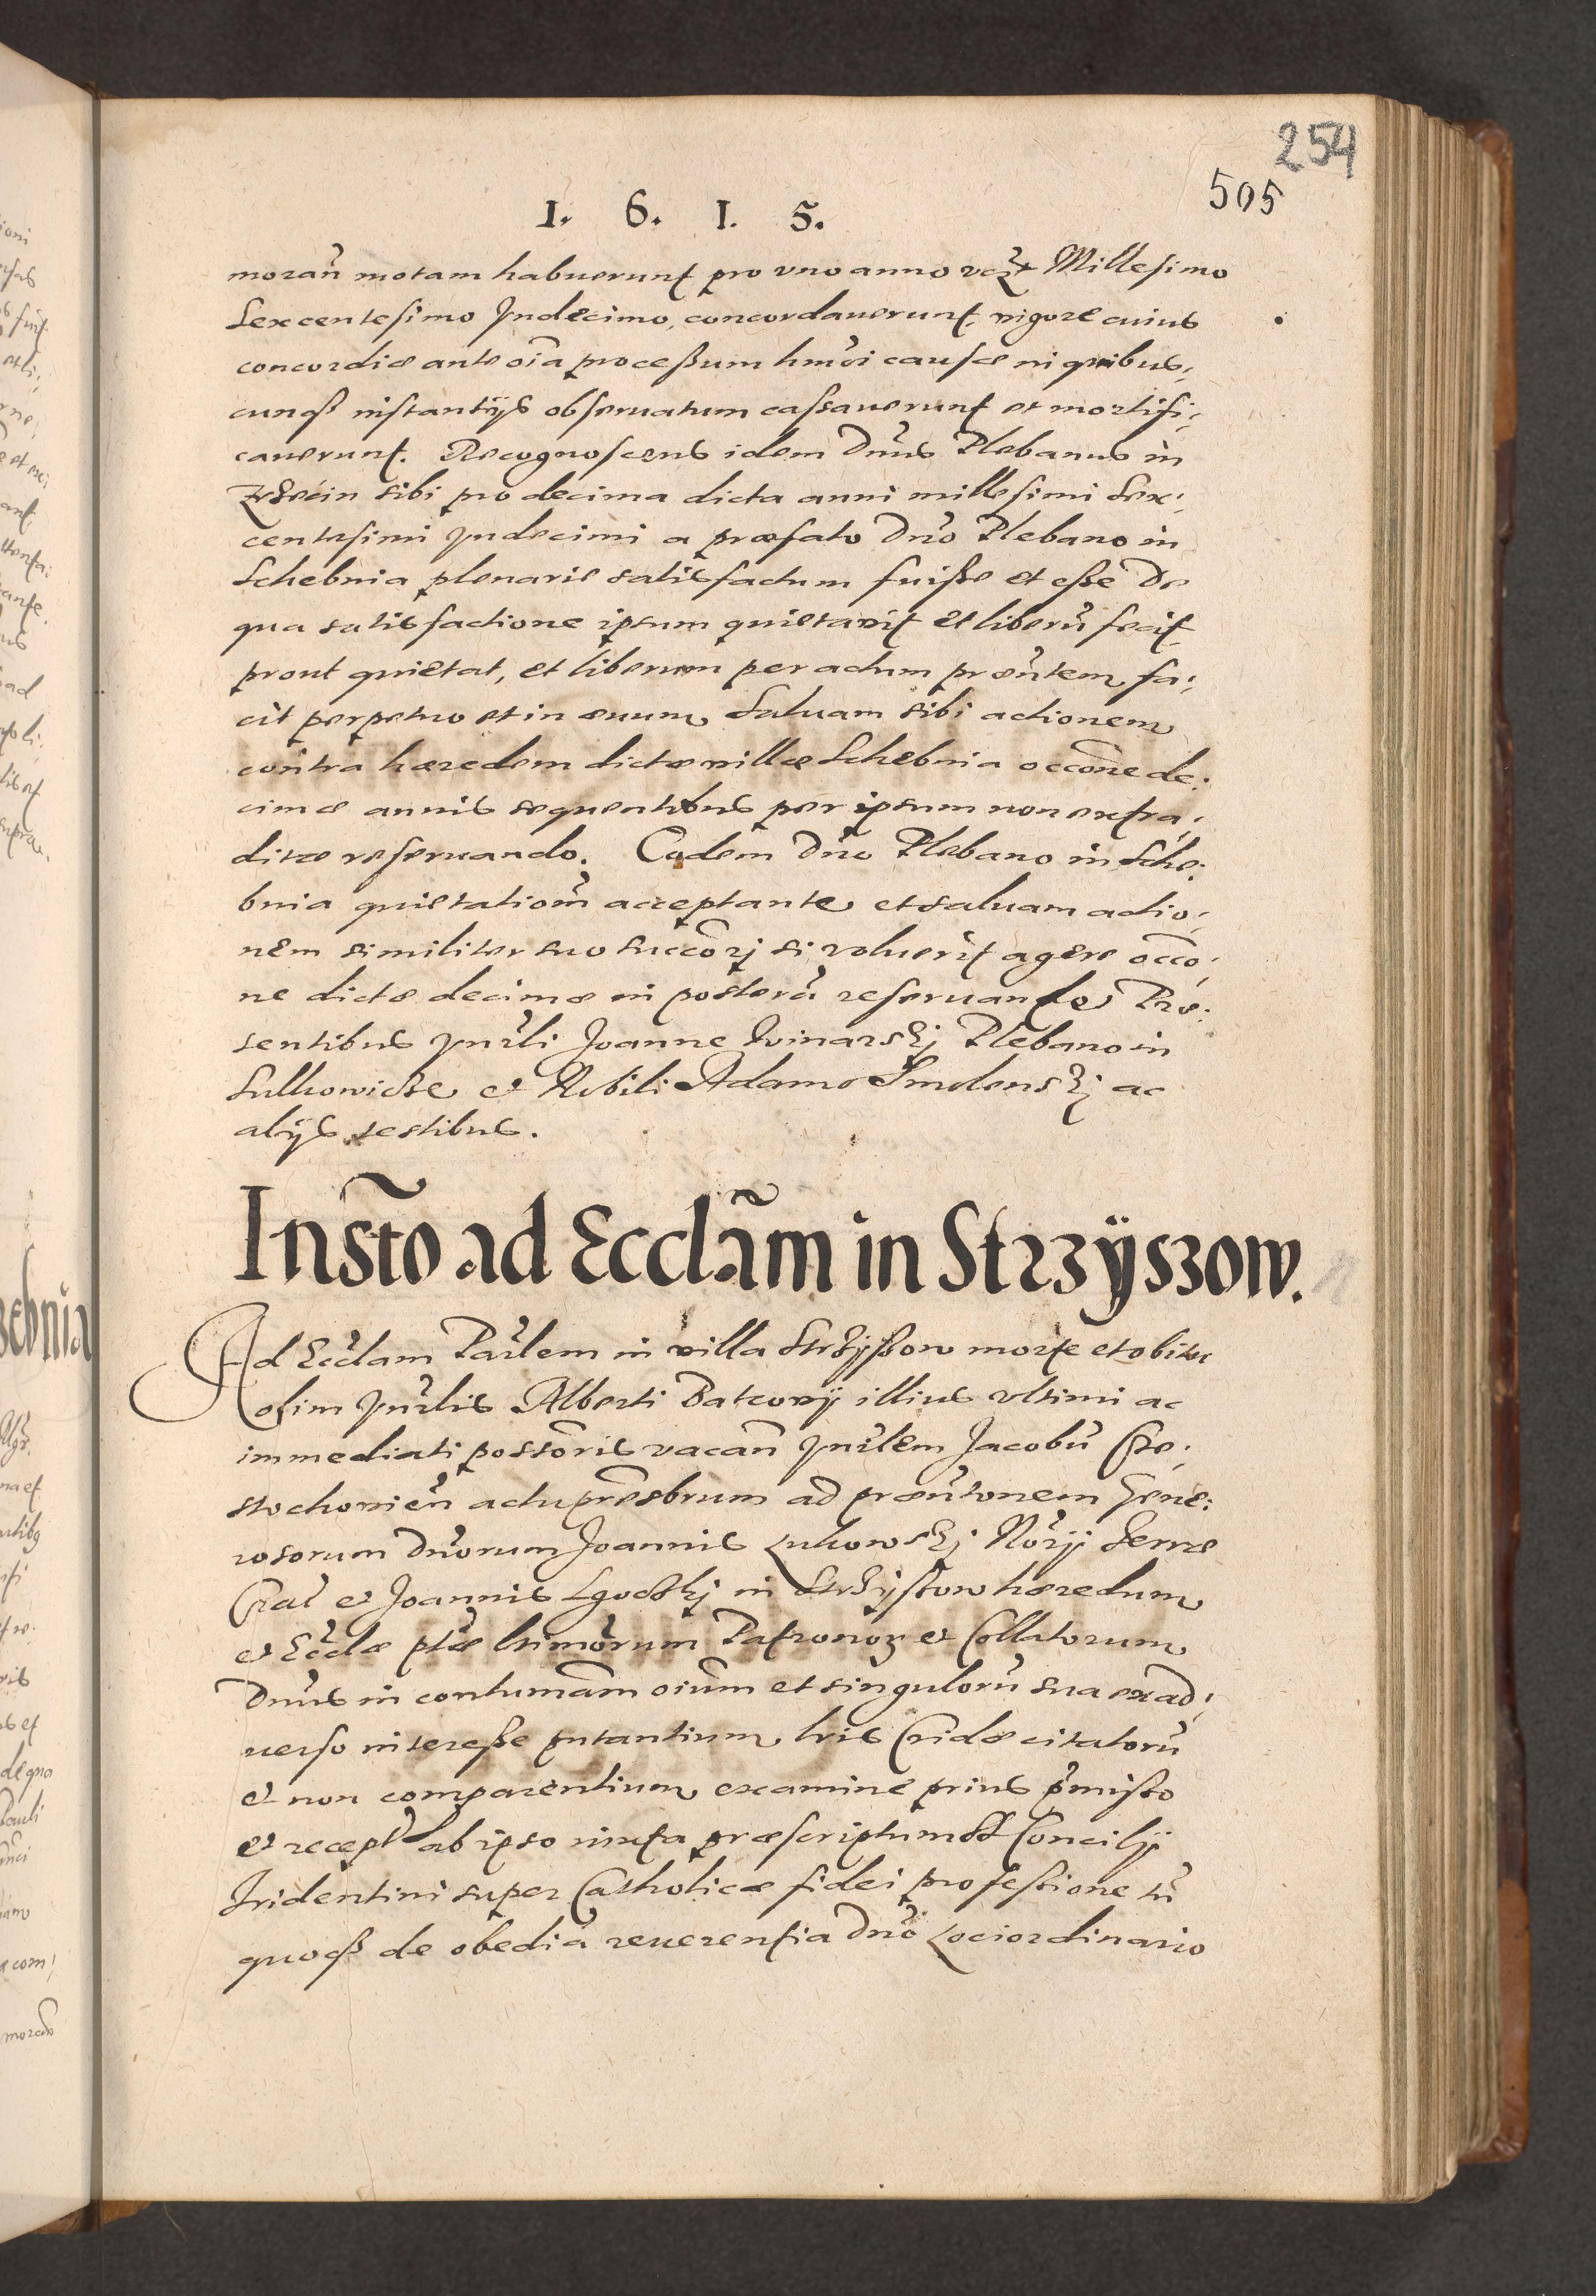 254
505
1. 6. 1. 5.
moran̄ motam habuerunt pro vno anno vczt Millesimo
Sexcentesimo Vndecimo, concordauerunt, vigore cuius
concordiæ ante oīa processum hmōi causæ in quibus;
cunq3 instantijs obseruatum cassauerunt et mortifi;
cauerunt. Recognoscens idem Dn̄us Plebanus in
sibi pro decima dicta anni millesimi Sex;
centesimi Vndecimi a præfato Dn̄o Plebano in
Schebnia plenarie satisfactum fuisse et esse De
qua satisfactione ipsum quietauit et liberū fecit
prout quietat, et liberum per actum præn̄tem fa;
cit perpetuo et in æuum, Saluam sibi actionem
contra hæredem dictæ villæ Schebnia occōne de;
cimæ annis sequentibus per ipsum non extra;
ditæ reseruando. Eodem Dn̄o Plebano in Sche;
bnia quietatiōm acceptante et saluam actio;
nem similiter suo succōri si voluerit agere occō;
ne dictæ decimæ in posterū reseruando, Præ;
sentibus Vnr̄li Joanne Plebano in
Sulkowicze et Nobili Adamo Smolenski ac
alijs testibus.
Insto͂ ad Eccla͂m in Strzÿszow.
Ad Eccl̄am Par̄lem in villa Strzÿszow morte et obitu
olim Vnr̄lis Alberti Patcovij illius vltimi ac
immediati possōris vacan̄ Vnr̄lem Jacobū Cze;
stochouien̄ actu presbrum ad præn̄tonem Gene;
rosorum Dn̄orum Joannis Lukowski Nōrij Terræ
Crac̄ et Joannis Lgoczki in Strzÿszow hæredum
et Eccl̄æ pt̄æ ltimōrum Patronor et Collatorum
Dn̄us in contumām oiūm et singulorū sua ex ad;
uerso interesse putantium, lris Cridæ citatorū
et non comparentium, examine prius p̄misso
et recept̄ ab ipso iuxta præscriptum St Concilij
Tridentini super Catholicæ fidei professione tū
quoq3 de obediā reuerentia Dn̄o Loci ordinario